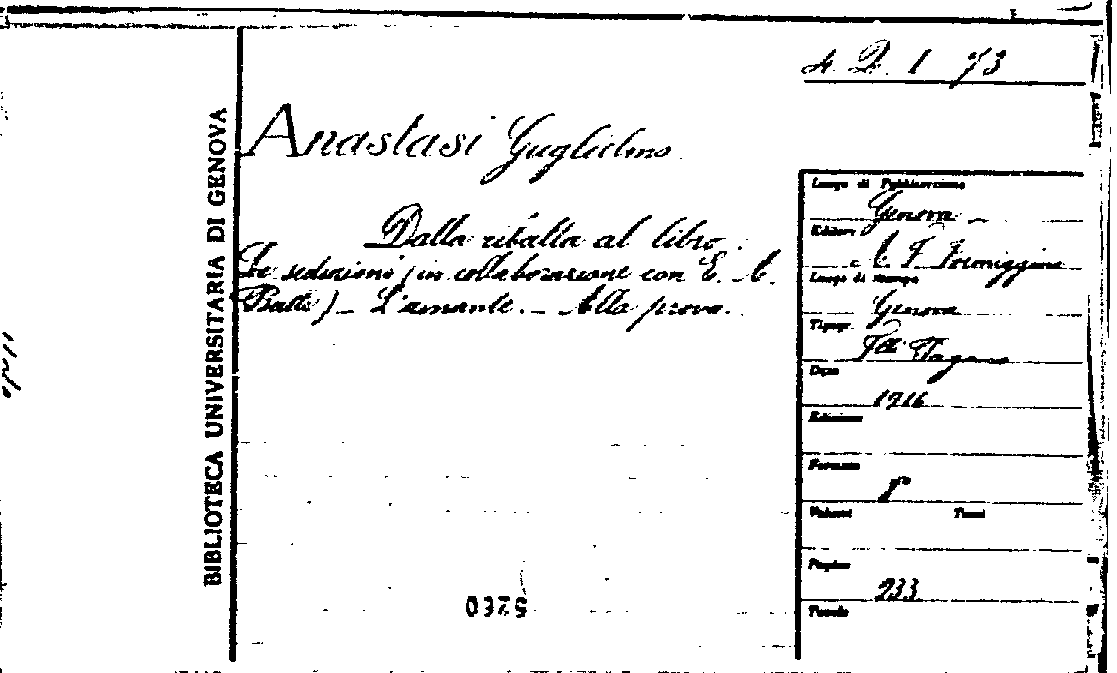 4. D. 1 73
BIBLIOTECA UNIVERSITARIA DI GENOVA
Anastasi Guglielmo
Dalla ribalta al libro.
Le seduzioni (in collaborazione con E. A.
Butti) – L'amante. – Alla prova.
Luogo di Pubblicazione
Genova
Editore
A. F. Formiggini
Luogo di stampa
Genova
Tipogr.
F.lli Pagano
Data
1916
Edizione
Formato
8°
Volumi Tomi
Pagine
233
Tavole
5260